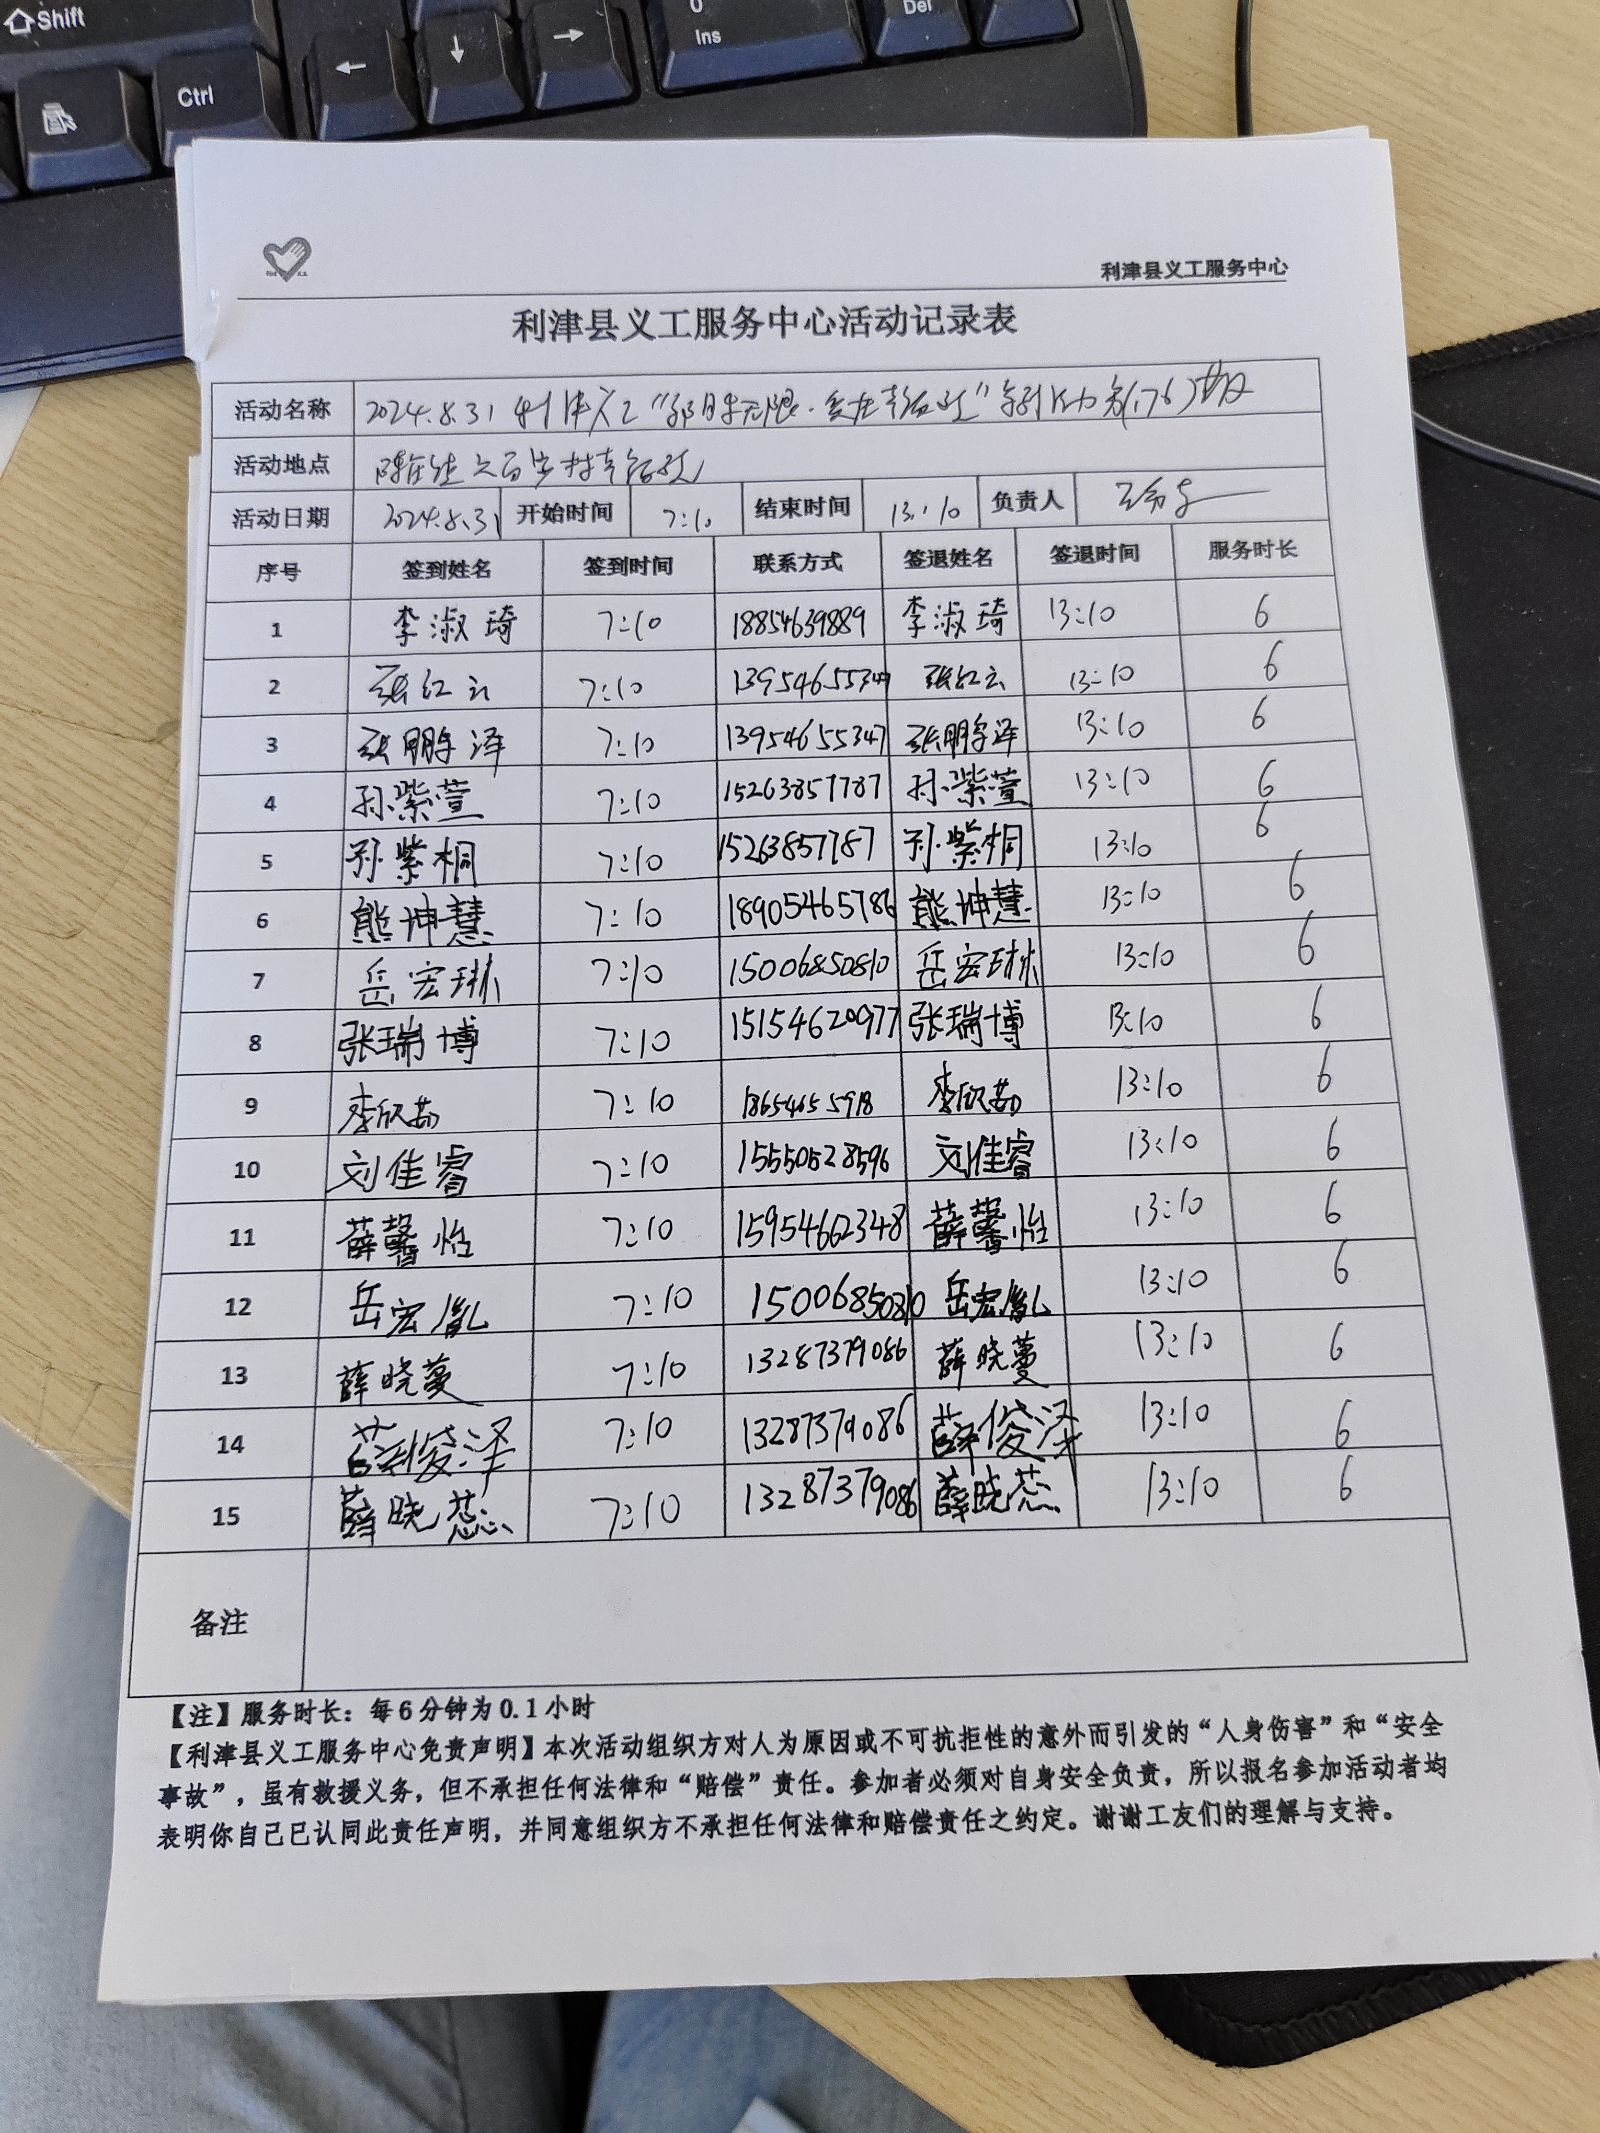 Shift
Ctrl
←
↓
→
0
Ins
Del
利津县义工服务中心
利津县义工服务中心活动记录表
活动名称 2024.8.31 利津义工
活动地点
活动日期 2024.8.31 开始时间 7:10 结束时间 13:10 负责人
序号 签到姓名 签到时间 联系方式 签退姓名 签退时间 服务时长
1 李淑琦 7:10 18854639889 李淑琦 13:10 6
2 张红云 7:10 张红云 13:10 6
3 张鹏泽 7:10 13954655347 张鹏泽 13:10 6
4 孙紫萱 7:10 15263857787 孙紫萱 13:10 6
5 孙紫桐 7:10 15263857787 孙紫桐 13:10 6
6 熊坤慧 7:10 18905465786 熊坤慧 13:10 6
7 岳宏琳 7:10 15006850810 岳宏琳 13:10 6
8 张瑞博 7:10 15154620977 张瑞博 13:10 6
9 李欣茹 7:10 18654655918 李欣茹 13:10 6
10 刘佳睿 7:10 15550528596 刘佳睿 13:10 6
11 薛馨怡 7:10 15954662348 薛馨怡 13:10 6
12 岳宏胤 7:10 15006850810 岳宏胤 13:10 6
13 薛晓蔓 7:10 13287379086 薛晓蔓 13:10 6
14 薛俊泽 7:10 13287379086 薛俊泽 13:10 6
15 薛晓蕊 7:10 13287379086 薛晓蕊 13:10 6
备注
【注】服务时长：每6分钟为0.1小时
【利津县义工服务中心免责声明】本次活动组织方对人为原因或不可抗拒性的意外而引发的“人身伤害”和“安全
事故”，虽有救援义务，但不承担任何法律和“赔偿”责任。参加者必须对自身安全负责，所以报名参加活动者均
表明你自己已认同此责任声明，并同意组织方不承担任何法律和赔偿责任之约定。谢谢工友们的理解与支持。